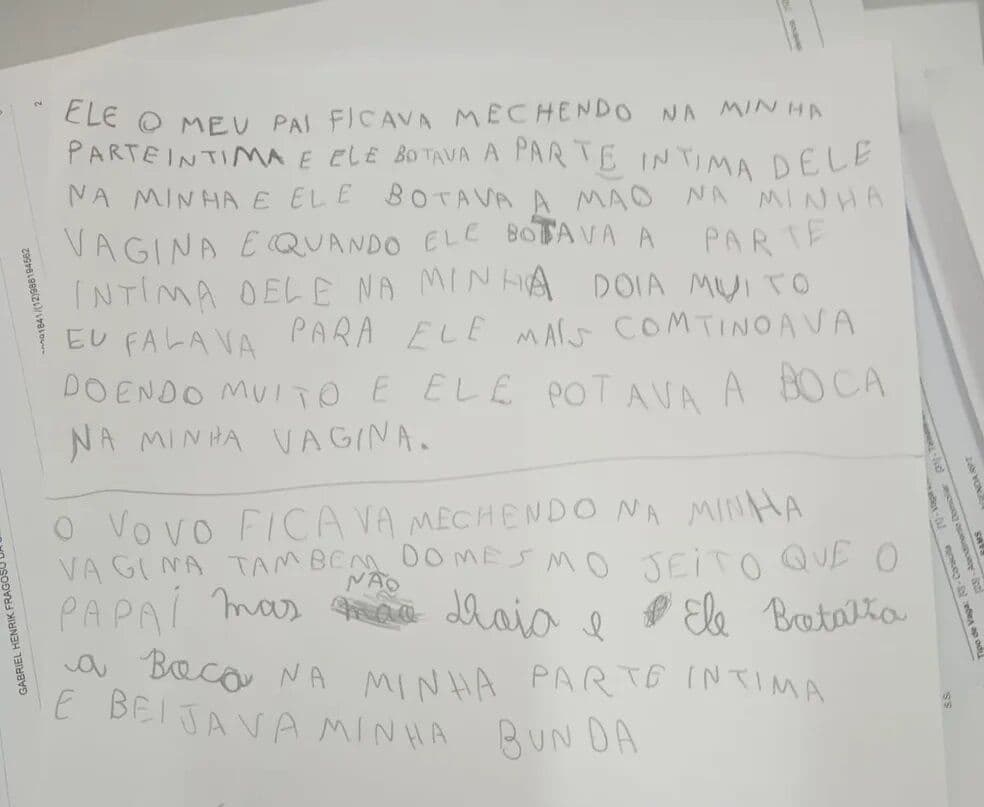 ELE O MEU PAI FICAVA MECHENDO NA MINHA
PARTEINTIMA E ELE BOTAVA A PARTE INTIMA DELE
NA MINHA E ELE BOTAVA A MAO NA MINHA
VAGINA E QUANDO ELE BOTAVA A PARTE
INTÍMA DELE NA MINHA DOIA MUITO
EU FALAVA PARA ELE MAIS COMTINOAVA
DOENDO MUITO E ELE POTAVA A BOCA
NA MINHA VAGINA.
O VOVO FICAVA MECHENDO NA MINHA
VAGINA TAMBEM DO MESMO JEITO QUE O
PAPAÍ mas NÃO e Ele Botava
a Boca NA MINHA PARTE INTIMA
E BEIJAVA MINHA BUNDA